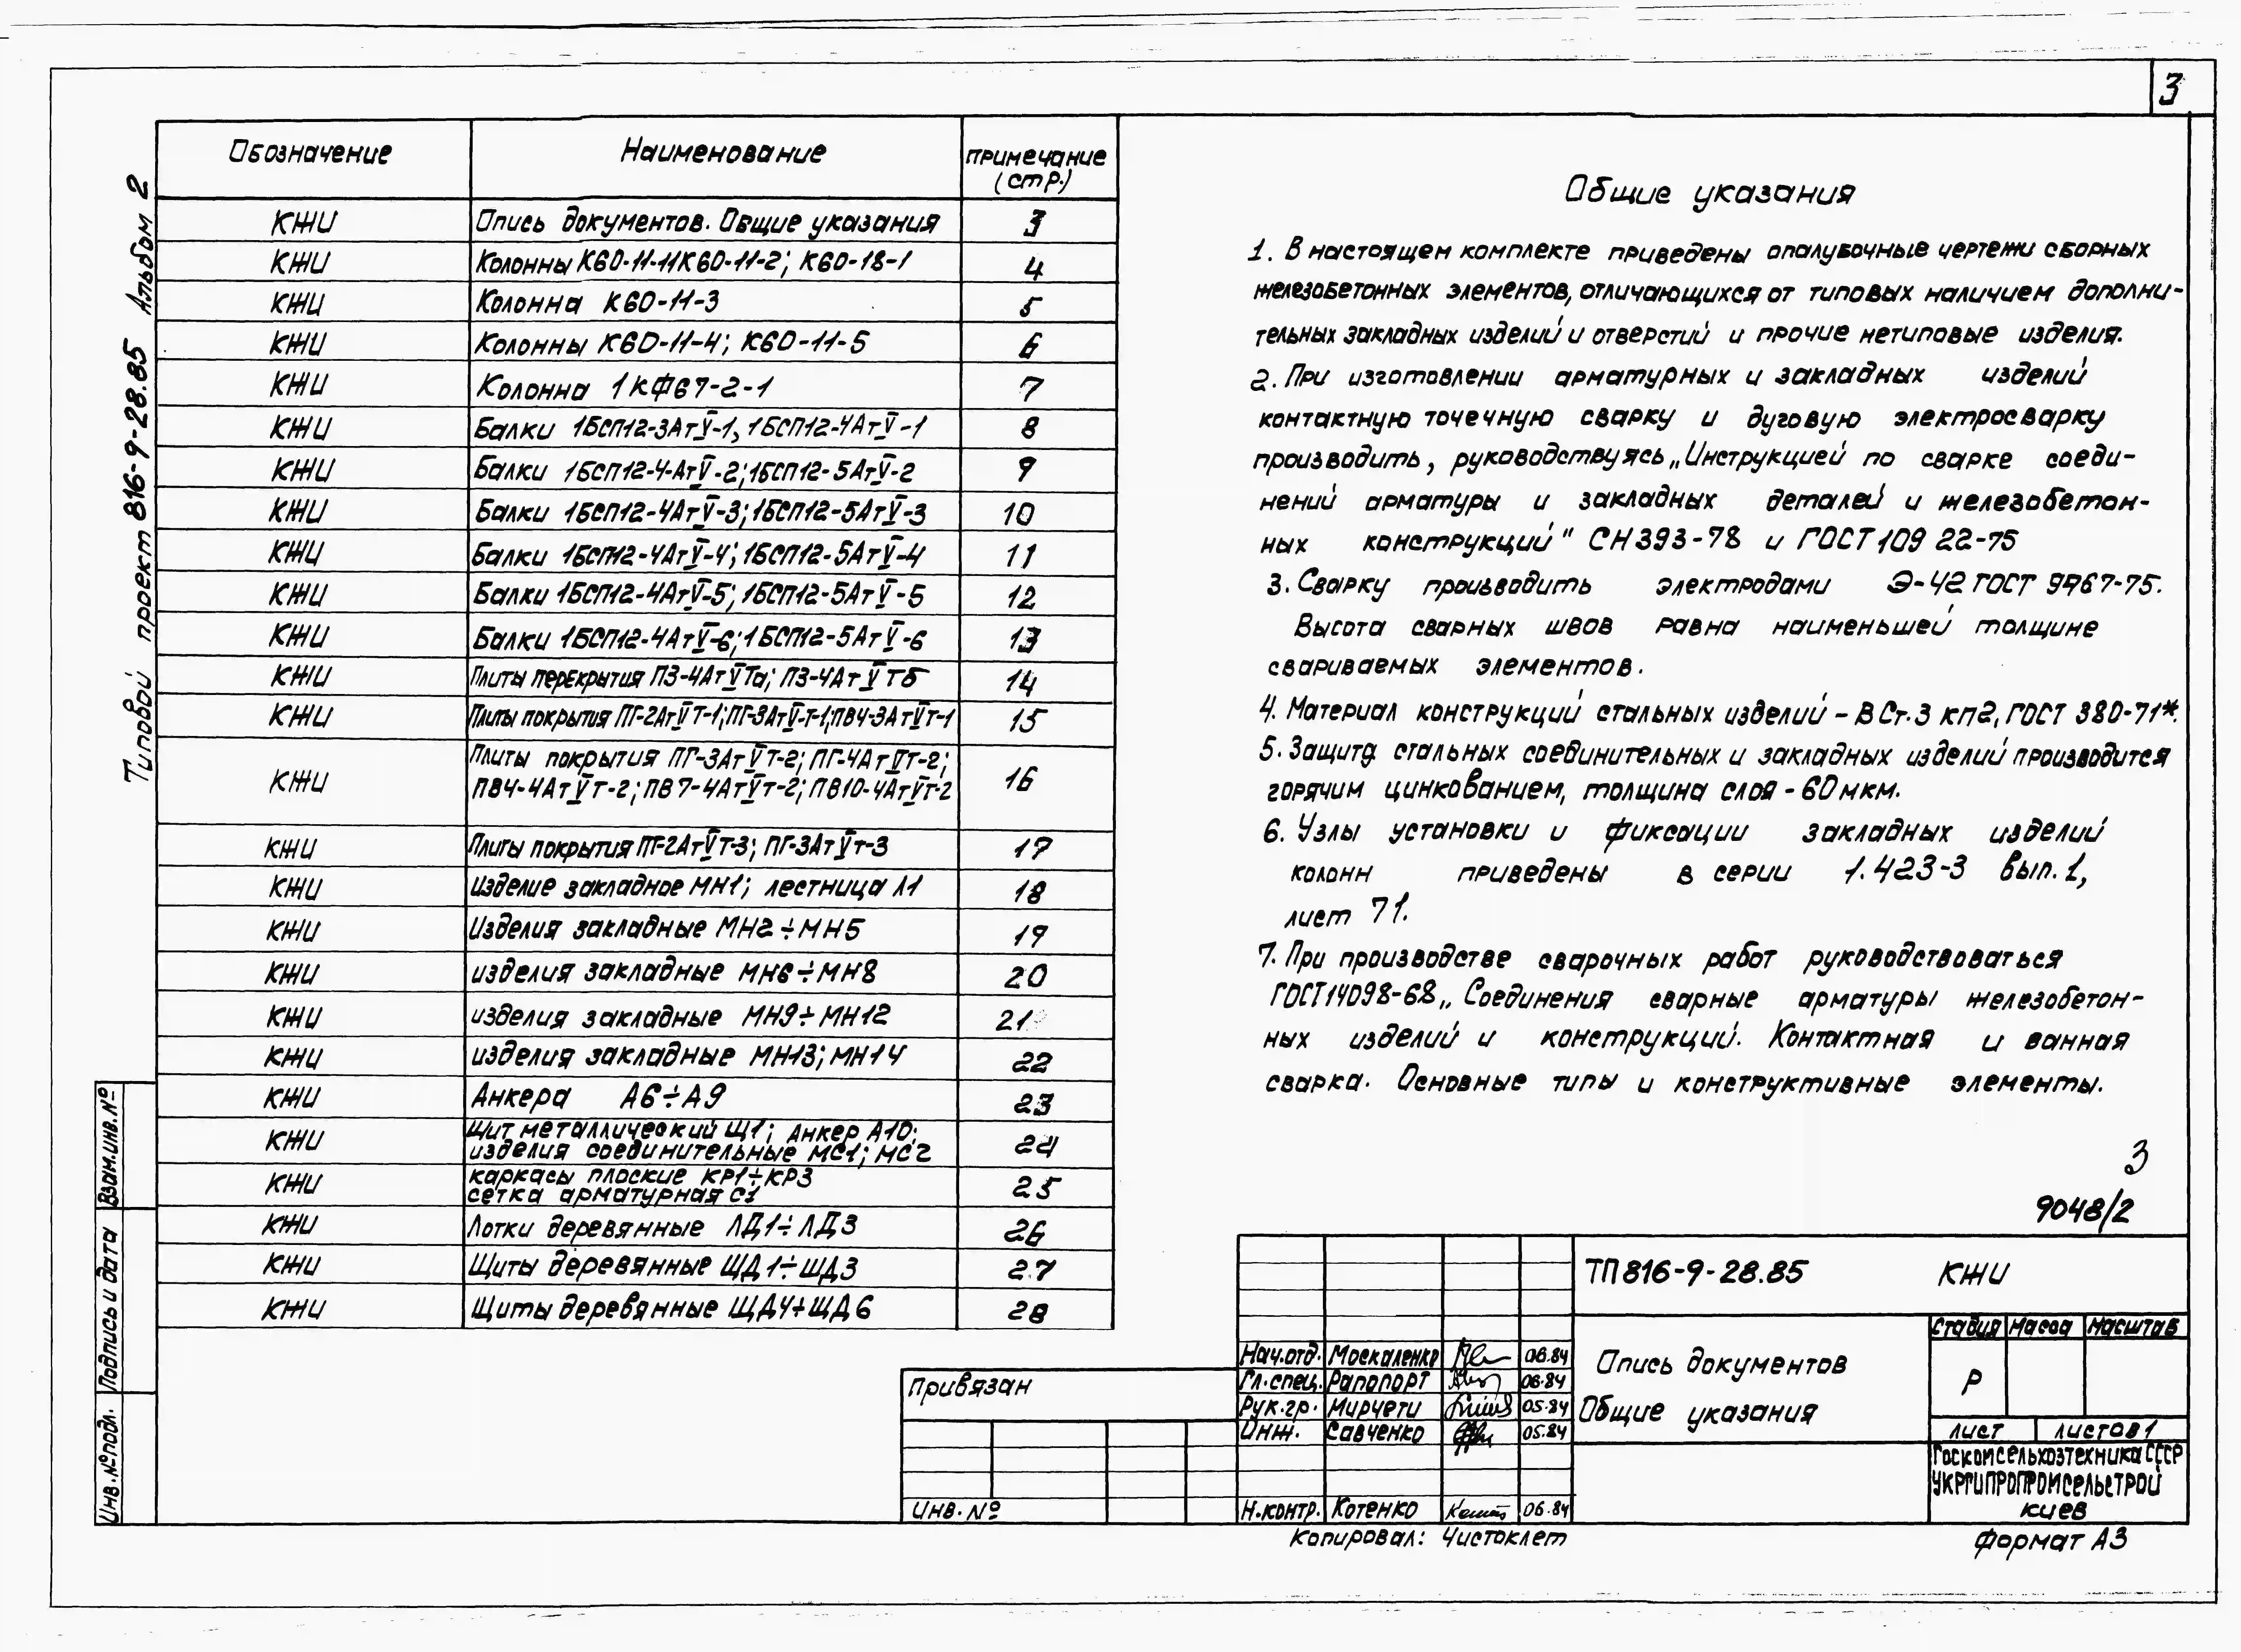 3
Типовой проект 816-9-28.85 Альбом 2
Обозначение Наименование примечание (стр.)
КЖИ Опись документов. Общие указания 3
КЖИ Колонны К60-11-1; К60-11-2; К60-18-1 4
КЖИ Колонна К60-11-3 5
КЖИ Колонны К60-11-4; К60-11-5 6
КЖИ Колонна 1КФ67-2-1 7
КЖИ Балки 1БСП12-3АтV-1, 1БСП12-4АтV-1 8
КЖИ Балки 1БСП12-4-АтV-2; 1БСП12-5АтV-2 9
КЖИ Балки 1БСП12-4АтV-3; 1БСП12-5АтV-3 10
КЖИ Балки 1БСП12-4АтV-4; 1БСП12-5АтV-4 11
КЖИ Балки 1БСП12-4АтV-5; 1БСП12-5АтV-5 12
КЖИ Балки 1БСП12-4АтV-6; 1БСП12-5АтV-6 13
КЖИ Плиты перекрытия П3-4АтVТа; П3-4АтVТб 14
КЖИ Плиты покрытия ПГ-2АтVТ-1; ПГ-3АтVТ-1; ПВ4-3АтVТ-1 15
КЖИ Плиты покрытия ПГ-3АтVТ-2; ПГ-4АтVТ-2;
ПВ4-4АтVТ-2; ПВ7-4АтVТ-2; ПВ10-4АтVТ-2 16
КЖИ Плиты покрытия ПГ-2АтVТ-3; ПГ-3АтVТ-3 17
КЖИ Изделие закладное МН1; лестница Л1 18
КЖИ Изделия закладные МН2÷МН5 19
КЖИ изделия закладные МН6÷МН8 20
КЖИ изделия закладные МН9÷МН12 21
КЖИ изделия закладные МН13; МН14 22
КЖИ Анкера А6÷А9 23
КЖИ Щит металлический Щ1; Анкер А10;
изделия соединительные МС1; МС2 24
КЖИ каркасы плоские КР1÷КР3
сетка арматурная С1 25
КЖИ Лотки деревянные ЛД1÷ЛД3 26
КЖИ Щиты деревянные ЩД1÷ЩД3 27
КЖИ Щиты деревянные ЩД4÷ЩД6 28
Общие указания
1. В настоящем комплекте приведены опалубочные чертежи сборных
железобетонных элементов, отличающихся от типовых наличием дополни-
тельных закладных изделий и отверстий и прочие нетиповые изделия.
2. При изготовлении арматурных и закладных изделий
контактную точечную сварку и дуговую электросварку
производить, руководствуясь „Инструкцией по сварке соеди-
нений арматуры и закладных деталей и железобетон-
ных конструкций" СН 393-78 и ГОСТ 10922-75
3. Сварку производить электродами Э-42 ГОСТ 9467-75.
Высота сварных швов равна наименьшей толщине
свариваемых элементов.
4. Материал конструкций стальных изделий - ВСт.3 кп2, ГОСТ 380-71*.
5. Защита стальных соединительных и закладных изделий производится
горячим цинкованием, толщина слоя - 60 мкм.
6. Узлы установки и фиксации закладных изделий
колонн приведены в серии 1.423-3 вып. 1,
лист 71.
7. При производстве сварочных работ руководствоваться
ГОСТ 14098-68 „Соединения сварные арматуры железобетон-
ных изделий и конструкций. Контактная и ванная
сварка. Основные типы и конструктивные элементы.
3
9048/2
ТП 816-9-28.85 КЖИ
Опись документов
Общие указания
Стадия Масса Масштаб
Р
лист листов 1
Госкомсельхозтехника СССР
УКРГИПРОПРОМСЕЛЬСТРОЙ
киев
Нач.отд. Москаленко 06.84
Гл.спец. Рапопорт 06.84
Рук.гр. Мирчети 05.84
Инж. Савченко 05.84
Н.контр. Котенко 06.84
Привязан
Инв. №
Взам.инв.№
Подпись и дата
Инв.№ подл.
Копировал: Чистоклет
формат А3